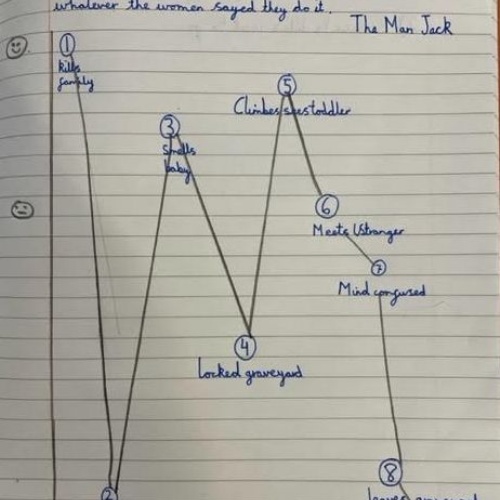 whatever the women sayed they do it.
The Man Jack
1
kills
family
5
Climbes sees toddler
3
smells
baby
6
Meets Stranger
7
Mind confused
4
Locked graveyard
8
leaves
2